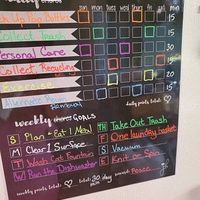 sun mon tues wed thur fri sat min
Pick Up Top Bottles 15
Collect Trash 15
Personal Care 30
Collect Recycling 15
Exercise 20
15
Removal
daily points total:
weekly GOALS
S Plan + Eat 1 Meal
M Clear 1 Surface
T Wash Cat Fountain
W Run the Dishwasher
TH Take Out Trash
F One laundry basket
S Vacuum
S Knit or Spin
weekly points total: total: 30 min reward: Peace